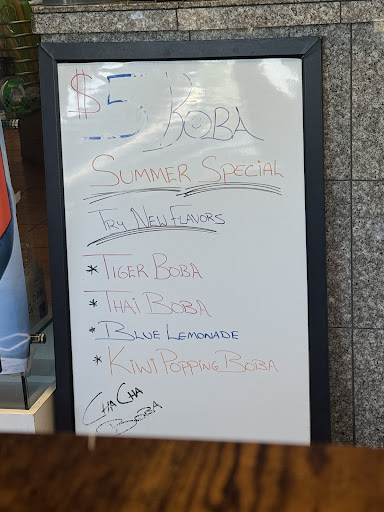 $5 BOBA
SUMMER SPECIAL
TRY NEW FLAVORS
* TIGER BOBA
* THAI BOBA
* BLUE LEMONADE
* KIWI POPPING BOBA
CHA CHA
BOBA